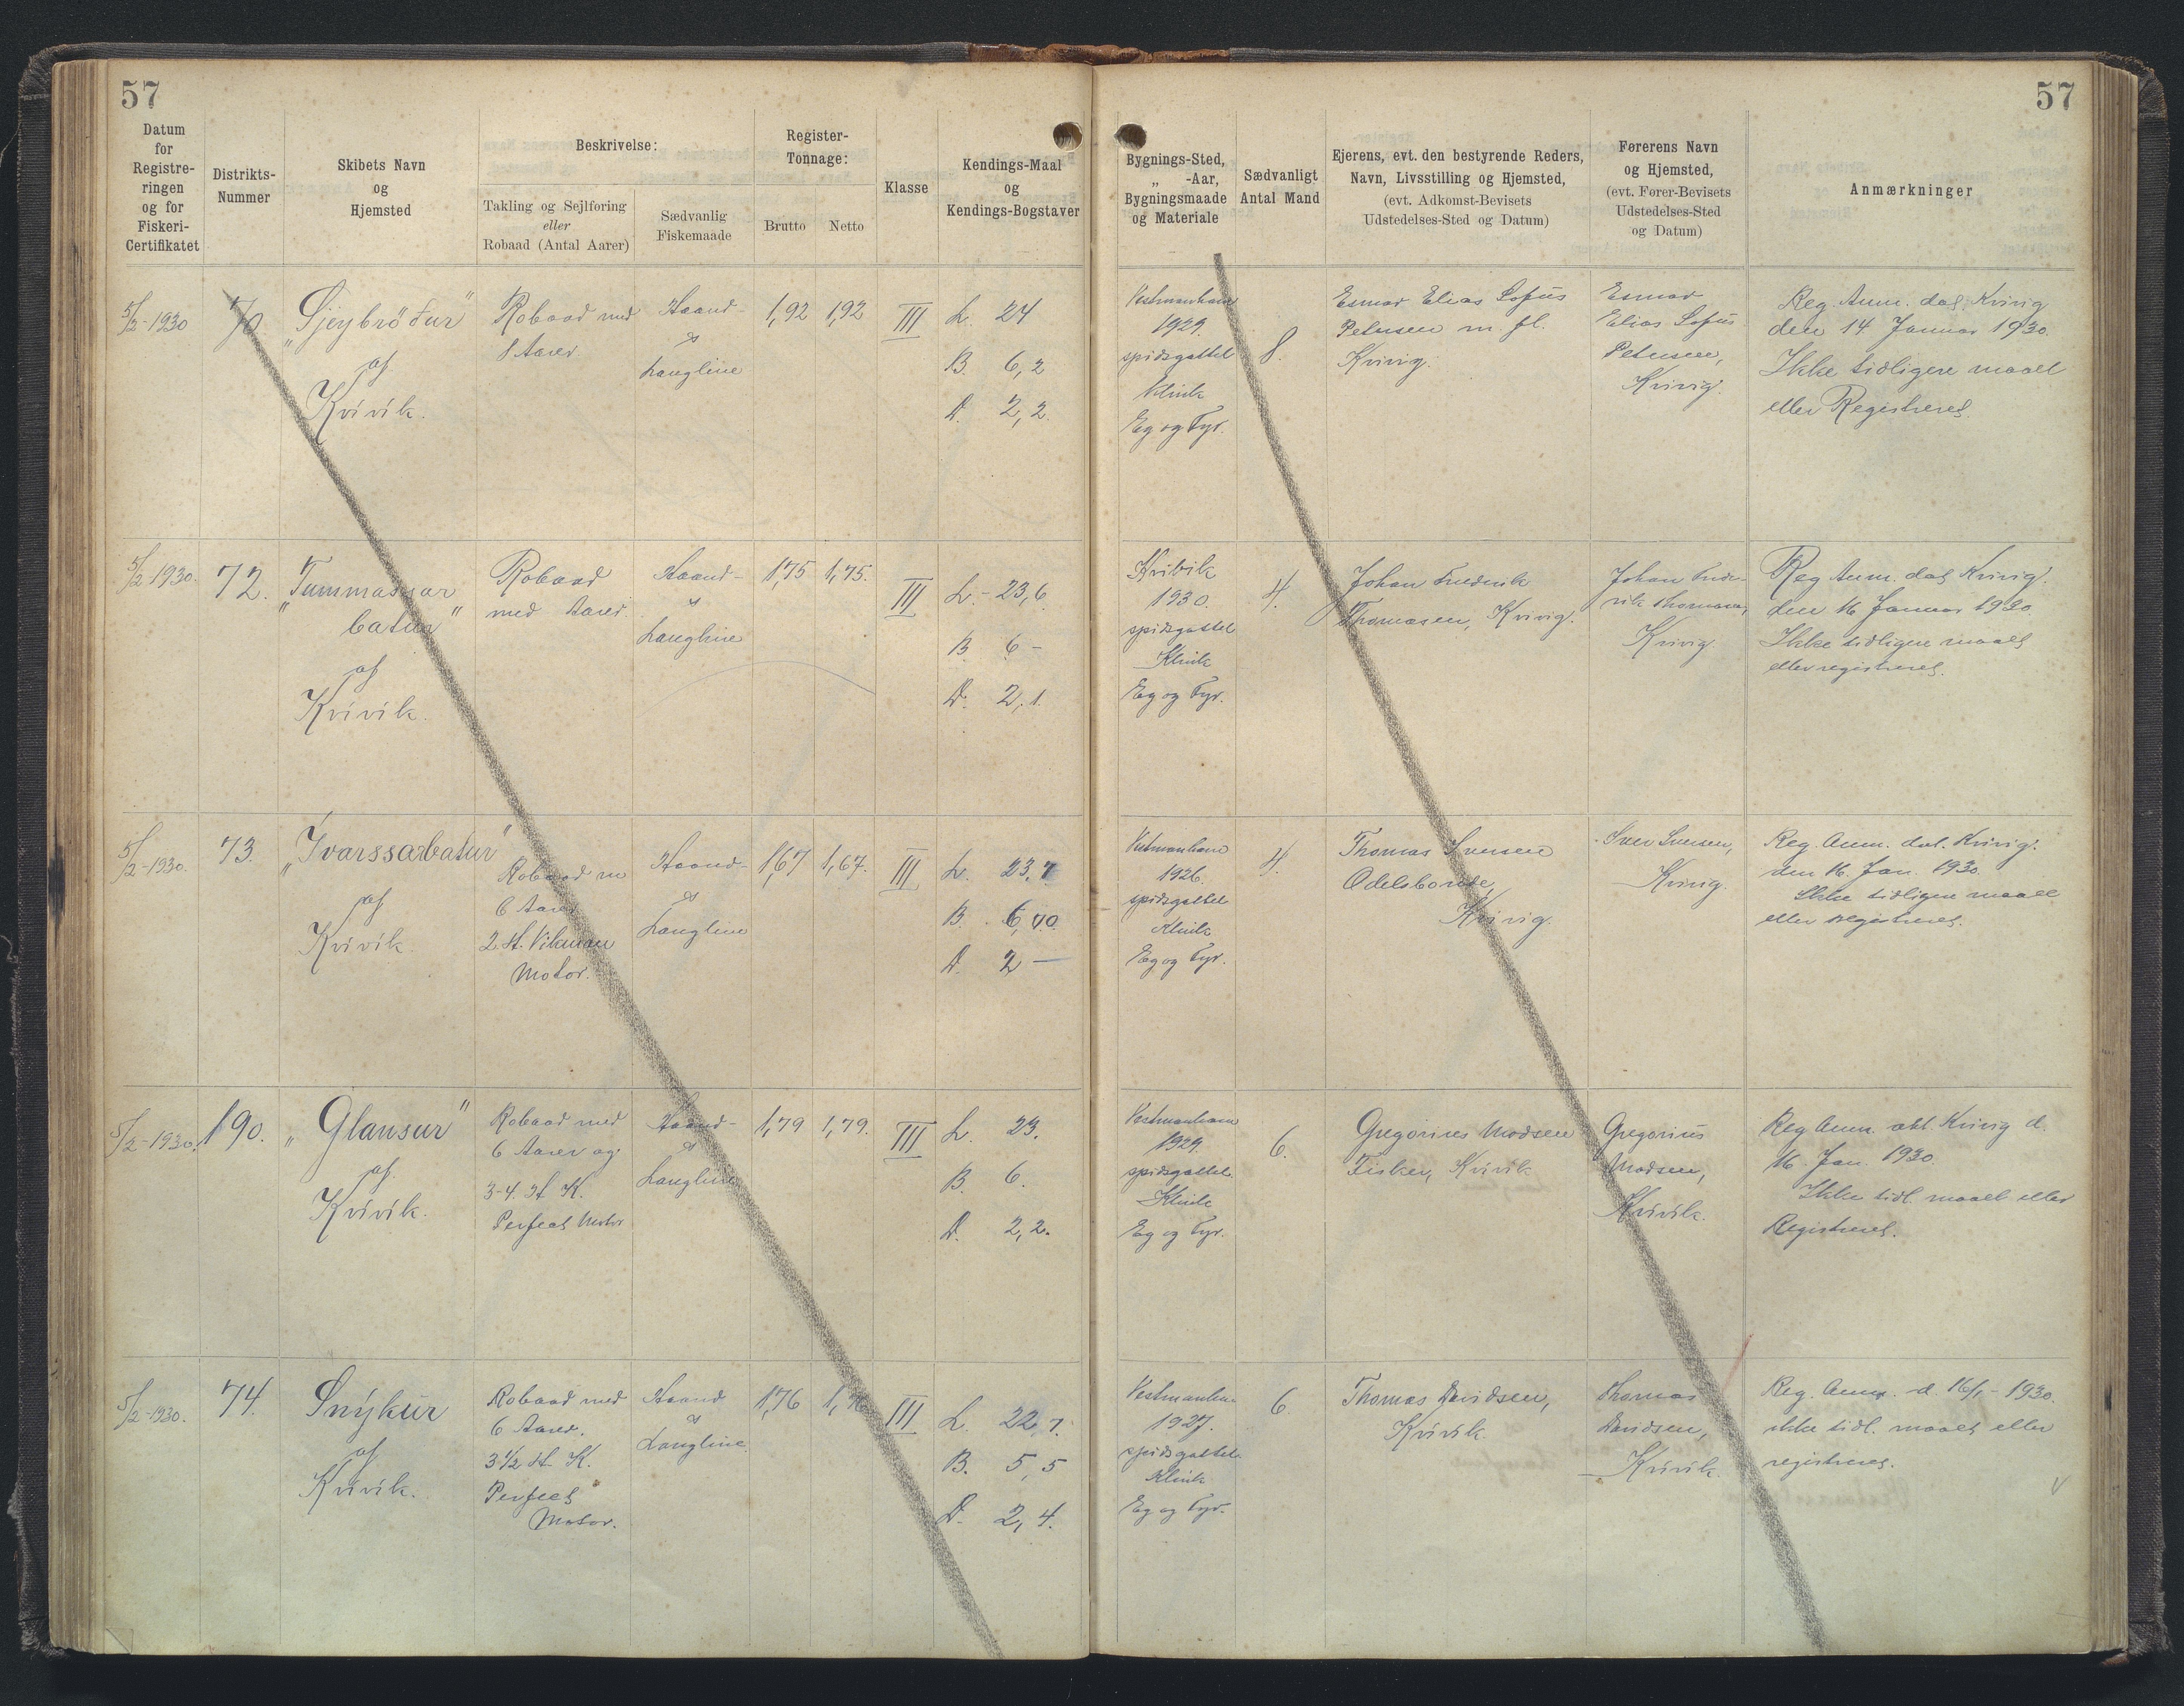 57
57
Datum for Registreringen og for Fiskeri-Certifikatet
Distrikts-Nummer
Skibets Navn og Hjemsted
Beskrivelse:
Takling og Sejlføring eller Robaad (Antal Aarer)
Sædvanlig Fiskemaade
Register-Tonnage:
Brutto
Netto
Klasse
Kendings-Maal og Kendings-Bogstaver
Bygnings-Sted, „ -Aar, Bygningsmaade og Materiale
Sædvanligt Antal Mand
Ejerens, evt. den bestyrende Reders, Navn, Livsstilling og Hjemsted, (evt. Adkomst-Bevisets Udstedelses-Sted og Datum)
Førerens Navn og Hjemsted, (evt. Fører-Bevisets Udstedelses-Sted og Datum)
Anmærkninger
5/2-1930
70
„Sjeybröður"
af
Kvívík.
Robaad med
8 Aarer
Haand-
og
Langline
1,92
1,92
III
L. 24
B. 6,2
D. 2,2
Vestmanhavn
1929.
spidsgattet
Klink
Eg og Fyr.
8.
Esmar Elias Sofus
Petersen m. fl.
Kvivig.
Esmar
Elias Sofus
Petersen,
Kvivig.
Reg. Anm. dat. Kvivig
den 14 Januar 1930.
Ikke tidligere maalt
eller Registreret.
5/2-1930.
72.
„Tummassar
batur"
af
Kvívík.
Robaad
med Aarer
Haand-
og
Langline
1,75
1,75.
III
L. - 23,6
B. 6 -
D. 2,1.
Kvivik
1930.
spidsgattet
Klink
Eg og Fyr.
4.
Johan Frederik
Thomasen, Kvivig.
Johan Frede-
rik Thomasen,
Kvivig.
Reg Anm. dat Kvivig.
den 16 Januar 1930.
Ikke tidligere maalt
eller registreret.
5/2-1930.
73.
„Ívarssarbatur"
af
Kvívík.
Robaad m
6 Aarer
2 H. Vikman
Motor.
Haand-
og
Langline
1,67
1,67.
III
L. 23,7
B. 6,40
D. 2 —
Vestmanhavn
1926.
spidsgattet
Klink
Eg og Fyr.
4.
Thomas Iversen
Odelsbonde,
Kvivig.
Iver Iversen,
Kvivig.
Reg. Anm. dat. Kvivig.
den 16. Jan. 1930.
Ikke tidligere maalt
eller registreret.
5/2-1930.
190.
„Glansur"
af
Kvívík.
Robaad med
6 Aarer og
3-4 H K.
Perfect Motor
Haand-
og
Langline
1,79
1,79.
III
L. 23.
B. 6.
D. 2,2.
Vestmanhavn
1929.
spidsgattet
Klink
Eg og Fyr.
6.
Gregorius Madsen
Fisker, Kvívík
Gregorius
Madsen,
Kvívík.
Reg Anm. dat. Kvivig d.
16. Jan. 1930.
Ikke tidl. maalt eller
Registreret.
5/2-1930.
74.
Snýkur
af
Kvívík.
Robaad med
6 Aarer.
3 1/2 H K.
Perfect
Motor.
Haand
og
Langline.
1,76
1,76
III
L. 22,7.
B. 5,5
D. 2,4.
1927.
spidsgattet
Klink
Eg og Fyr.
6.
Thomas Davidsen,
Kvívík
Thomas
Davidsen,
Kvívík.
Reg. Anm. d. 16/1-1930.
ikke tidl. maalt eller
registreret.